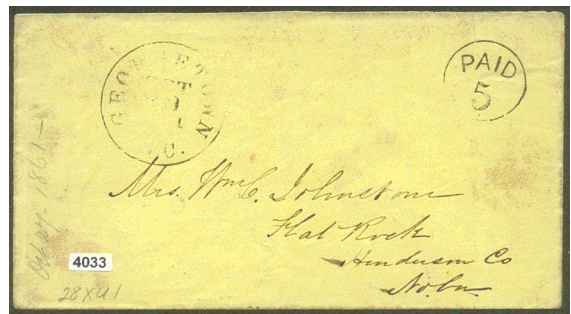 GEORGETOWN
OCT
S.C.
PAID
5
Mrs. Wm C. Johnstone
Flat Rock
Henderson Co
No. Ca
Oct 1861
4033
28XU1